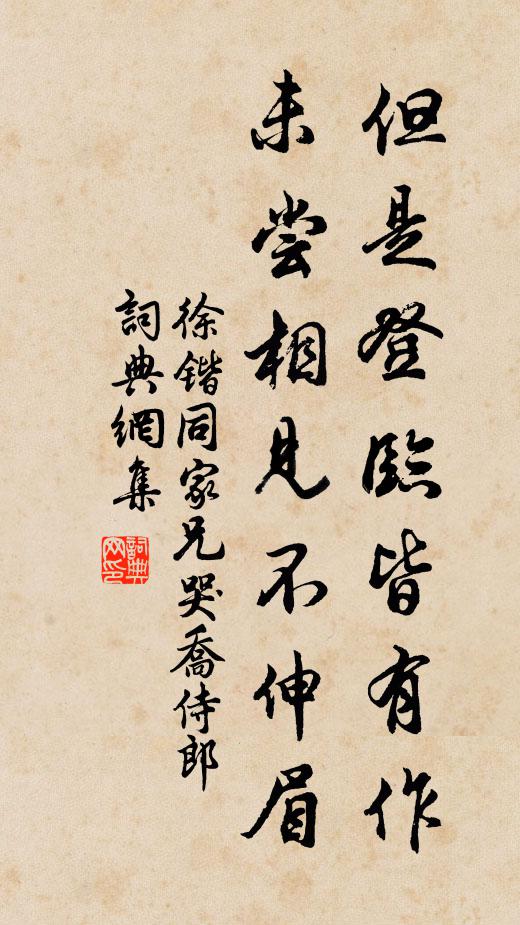 但是登臨皆有作
未嘗相見不伸眉
徐鍇同家兄哭喬侍郎
詞典網集
詞典网印